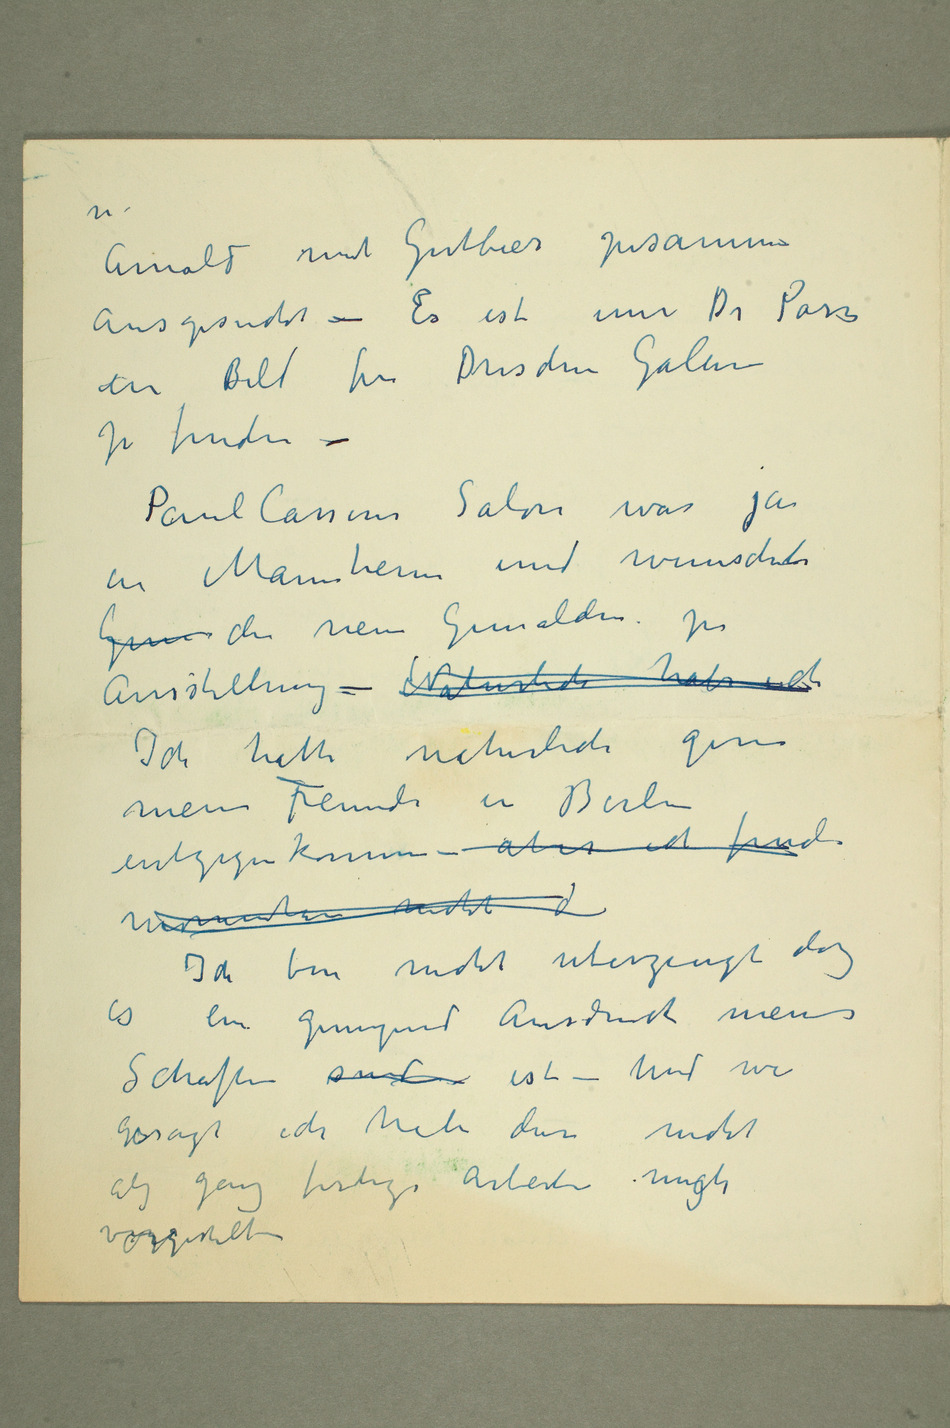 n.
Arnold mit Gutbier zusammen
ausgesucht – Es ist um Dr Poss
ein Bild für Dresden Galerie
zu finden –
Paul Cassirer Salon war ja
in Mannheim und wünschte
die neuen Gemälden zu
Ausstellung – Naturlich habe ich
Ich hatte naturlich gern
mein Freunde in Berlin
entgegenkommen – aber ich finde
momentan nicht d
Ich bin nicht uberzeugt das
es ein genugend Ausdruck meines
Schaffen sind ist – und wie
gesagt ich habe diese nicht
als ganz fertige Arbeiten
vorgestellt